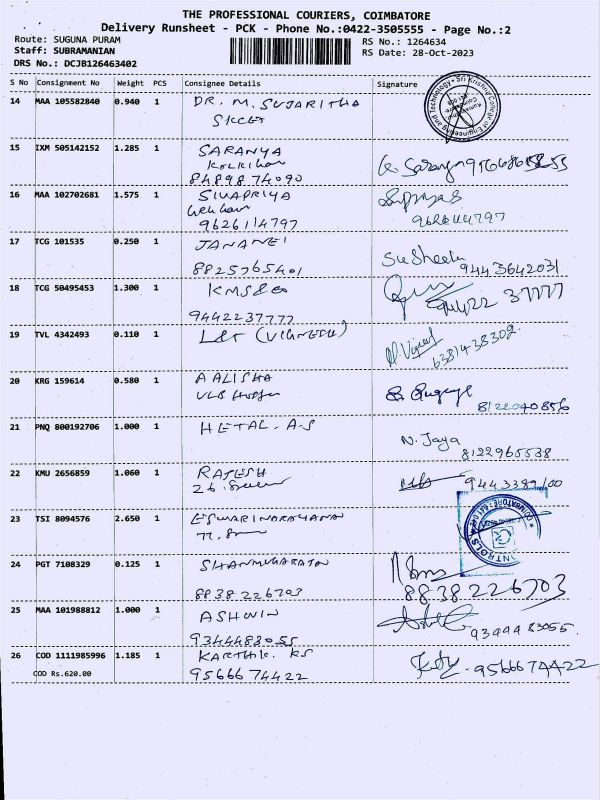 THE PROFESSIONAL COURIERS, COIMBATORE
Delivery Runsheet - PCK - Phone No.:0422-3505555 - Page No.:2
Route: SUGUNA PURAM
RS No.: 1264634
Staff: SUBRAMANIAN
RS Date: 28-Oct-2023
DRS No.: DCJB126463402
S No Consignment No Weight PCS Consignee Details Signature
14 MAA 105582840 0.940 1 DR. M. SUJARITHA
SKCET
Sri Krishna College of Engineering and Technology
15 IXM 505142152 1.285 1 SARANYA
8489874090
16 MAA 102702681 1.575 1 SIVAPRIYA
9626114797
9626114797
17 TCG 101535 0.250 1 JANANEI
8825765401
Susheela 9443642031
18 TCG 50495453 1.300 1 KMS & Co
9442237777
94422 37777
19 TVL 4342493 0.110 1 L&T (VIGNESH)
6381438302
20 KRG 159614 0.580 1 A ALISHA
VLB
8122040856
21 PNQ 800192706 1.000 1 HETAL. A.S
N. Jaya
8122965538
22 KMU 2656859 1.060 1 RAJESH
23 TSI 8094576 2.650 1 ESWARINARAYANAN
24 PGT 7108329 0.125 1 SHANMUGARAJAN
8838226703
8838226703
25 MAA 101988812 1.000 1 ASHWIN
9344483055
26 COD 1111985996 1.185 1 KARTHIK. KS
COD Rs.620.00
9566674422
9566674422